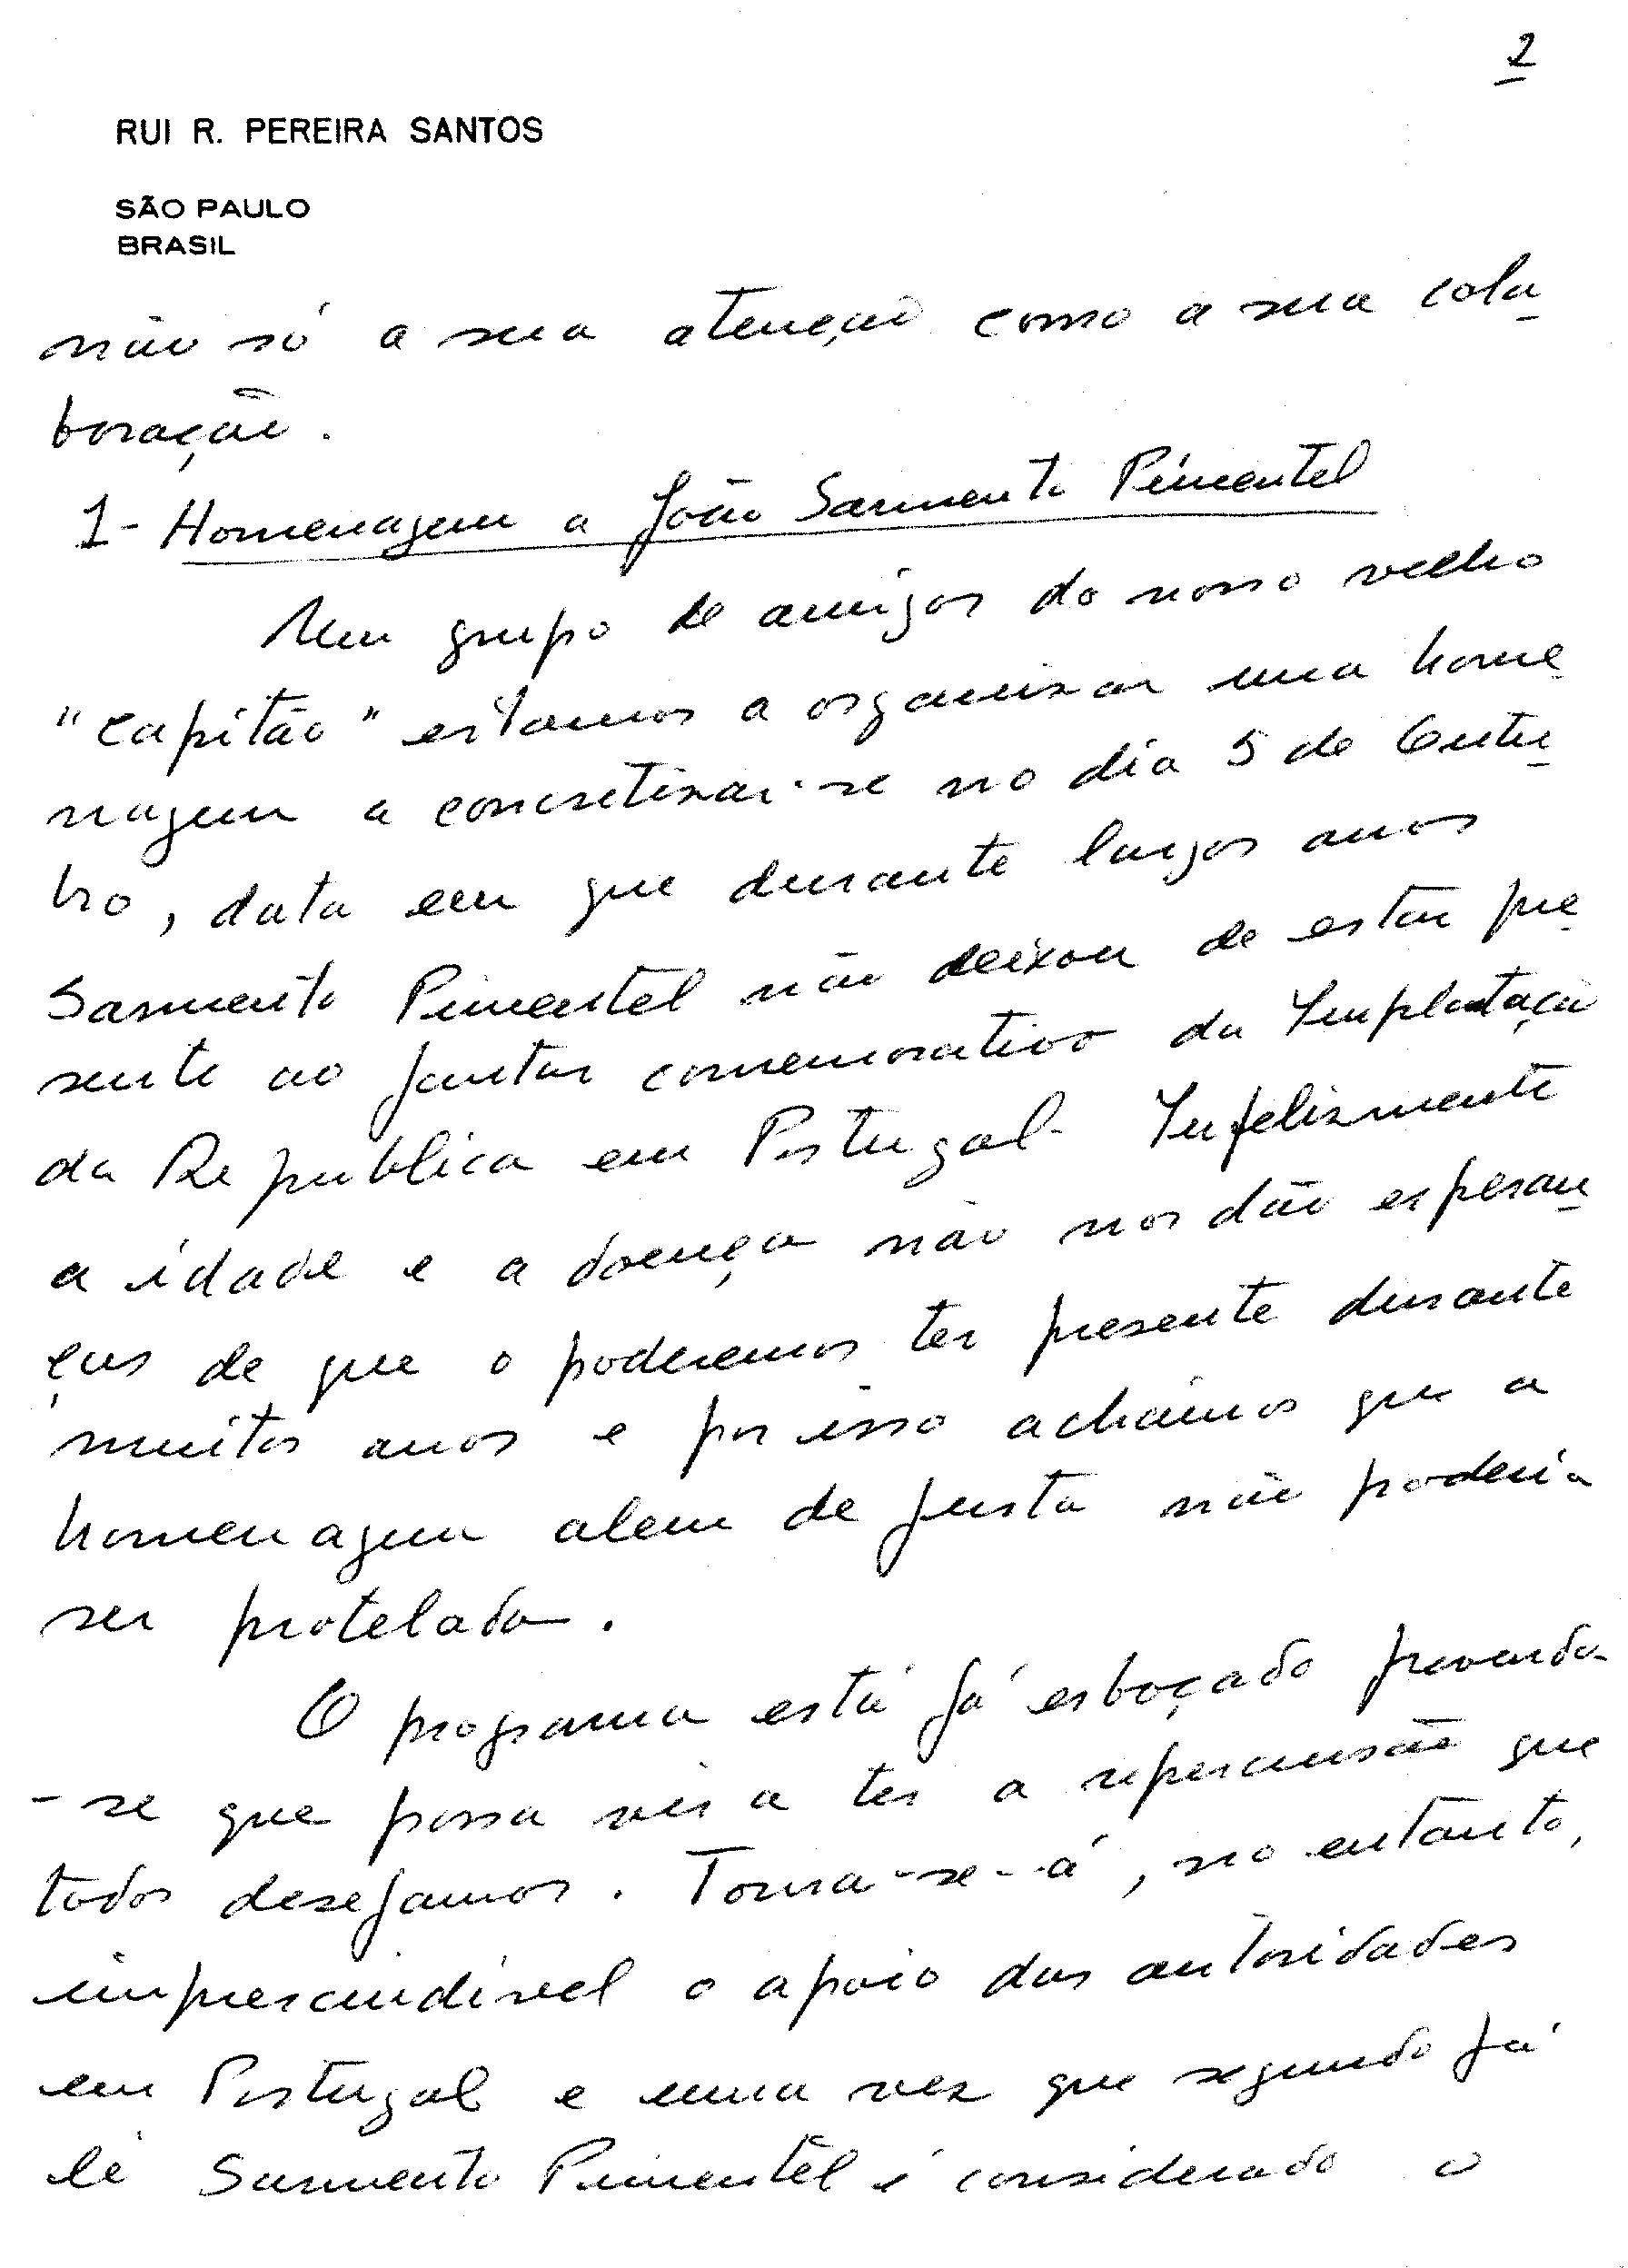 2
RUI R. PEREIRA SANTOS
SÃO PAULO
BRASIL
não só a sua atenção como a sua cola-
boração.
1- Homenagem a João Sarmento Pimentel
Um grupo de amigos do nosso velho
"capitão" estamos a organizar uma home-
nagem a concretizar-se no dia 5 de Outu-
bro, data em que durante largos anos
Sarmento Pimentel não deixou de estar pre-
sente ao jantar comemorativo da Implantação
da Republica em Portugal. Infelizmente
a idade e a doença não nos dão esperan-
ças de que o poderemos ter presente durante
muitos anos e por isso achámos que a
homenagem alem de justa não poderia
ser protelada.
O programa está já esboçado prevendo-
-se que possa vir a ter a repercusão que
todos desejamos. Torna-se-á, no entanto,
imprescindivel o apoio das autoridades
em Portugal e uma vez que segundo já
li Sarmento Pimentel é considerado o